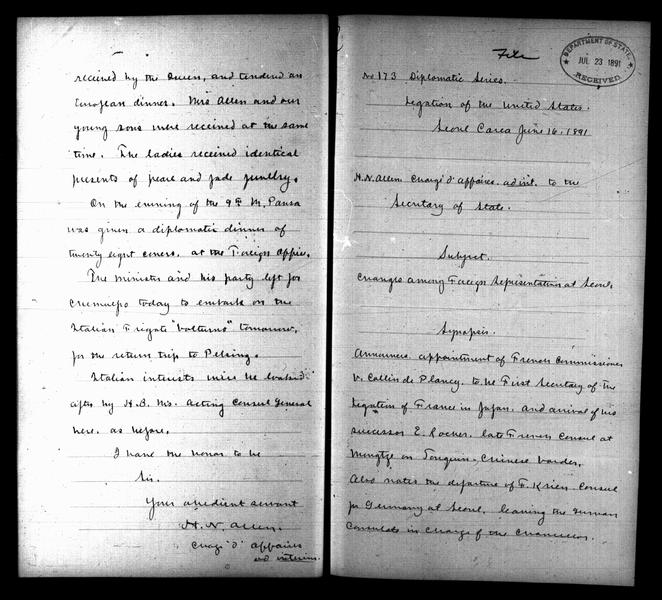 received by the Queen, and tendered an
European dinner. Mrs Allen and our
young sons were received at the same
time. The ladies received identical
presents of pearl and jade jewelry.
On the evening of the 9th M. Pansa
was given a diplomatic dinner of
twenty eight covers, at the Foreign Office.
The minister and his party left for
Chemulpo today to embark on the
Italian Frigate "Volturno" tomorrow,
for the return trip to Peking.
Italian interests will be looked
after by H.B.Ms. Acting Consul General
here, as before.
I have the honor to be
Sir.
Your obedient servant
H. N. Allen.
Chargé d' affaires
ad interim.
File
DEPARTMENT OF STATE
JUL 23 1891
RECEIVED
No 173 Diplomatic Series.
Legation of the United States.
Seoul Corea June 16, 1891
H. N. Allen Chargé d' affaires. ad int. to the
Secretary of State.
Subject.
Changes among Foreign Representatives at Seoul.
Synopsis.
Announces appointment of French Commissioner
V. Collin de Plancy, to be First Secretary of the
Legation of France in Japan, and arrival of his
successor E. Rocher, late French Consul at
Mengtze on Tonquin-Chinese border.
Also notes the departure of F. Krien Consul
for Germany at Seoul, leaving the German
Consulate in Charge of the Chancellor.